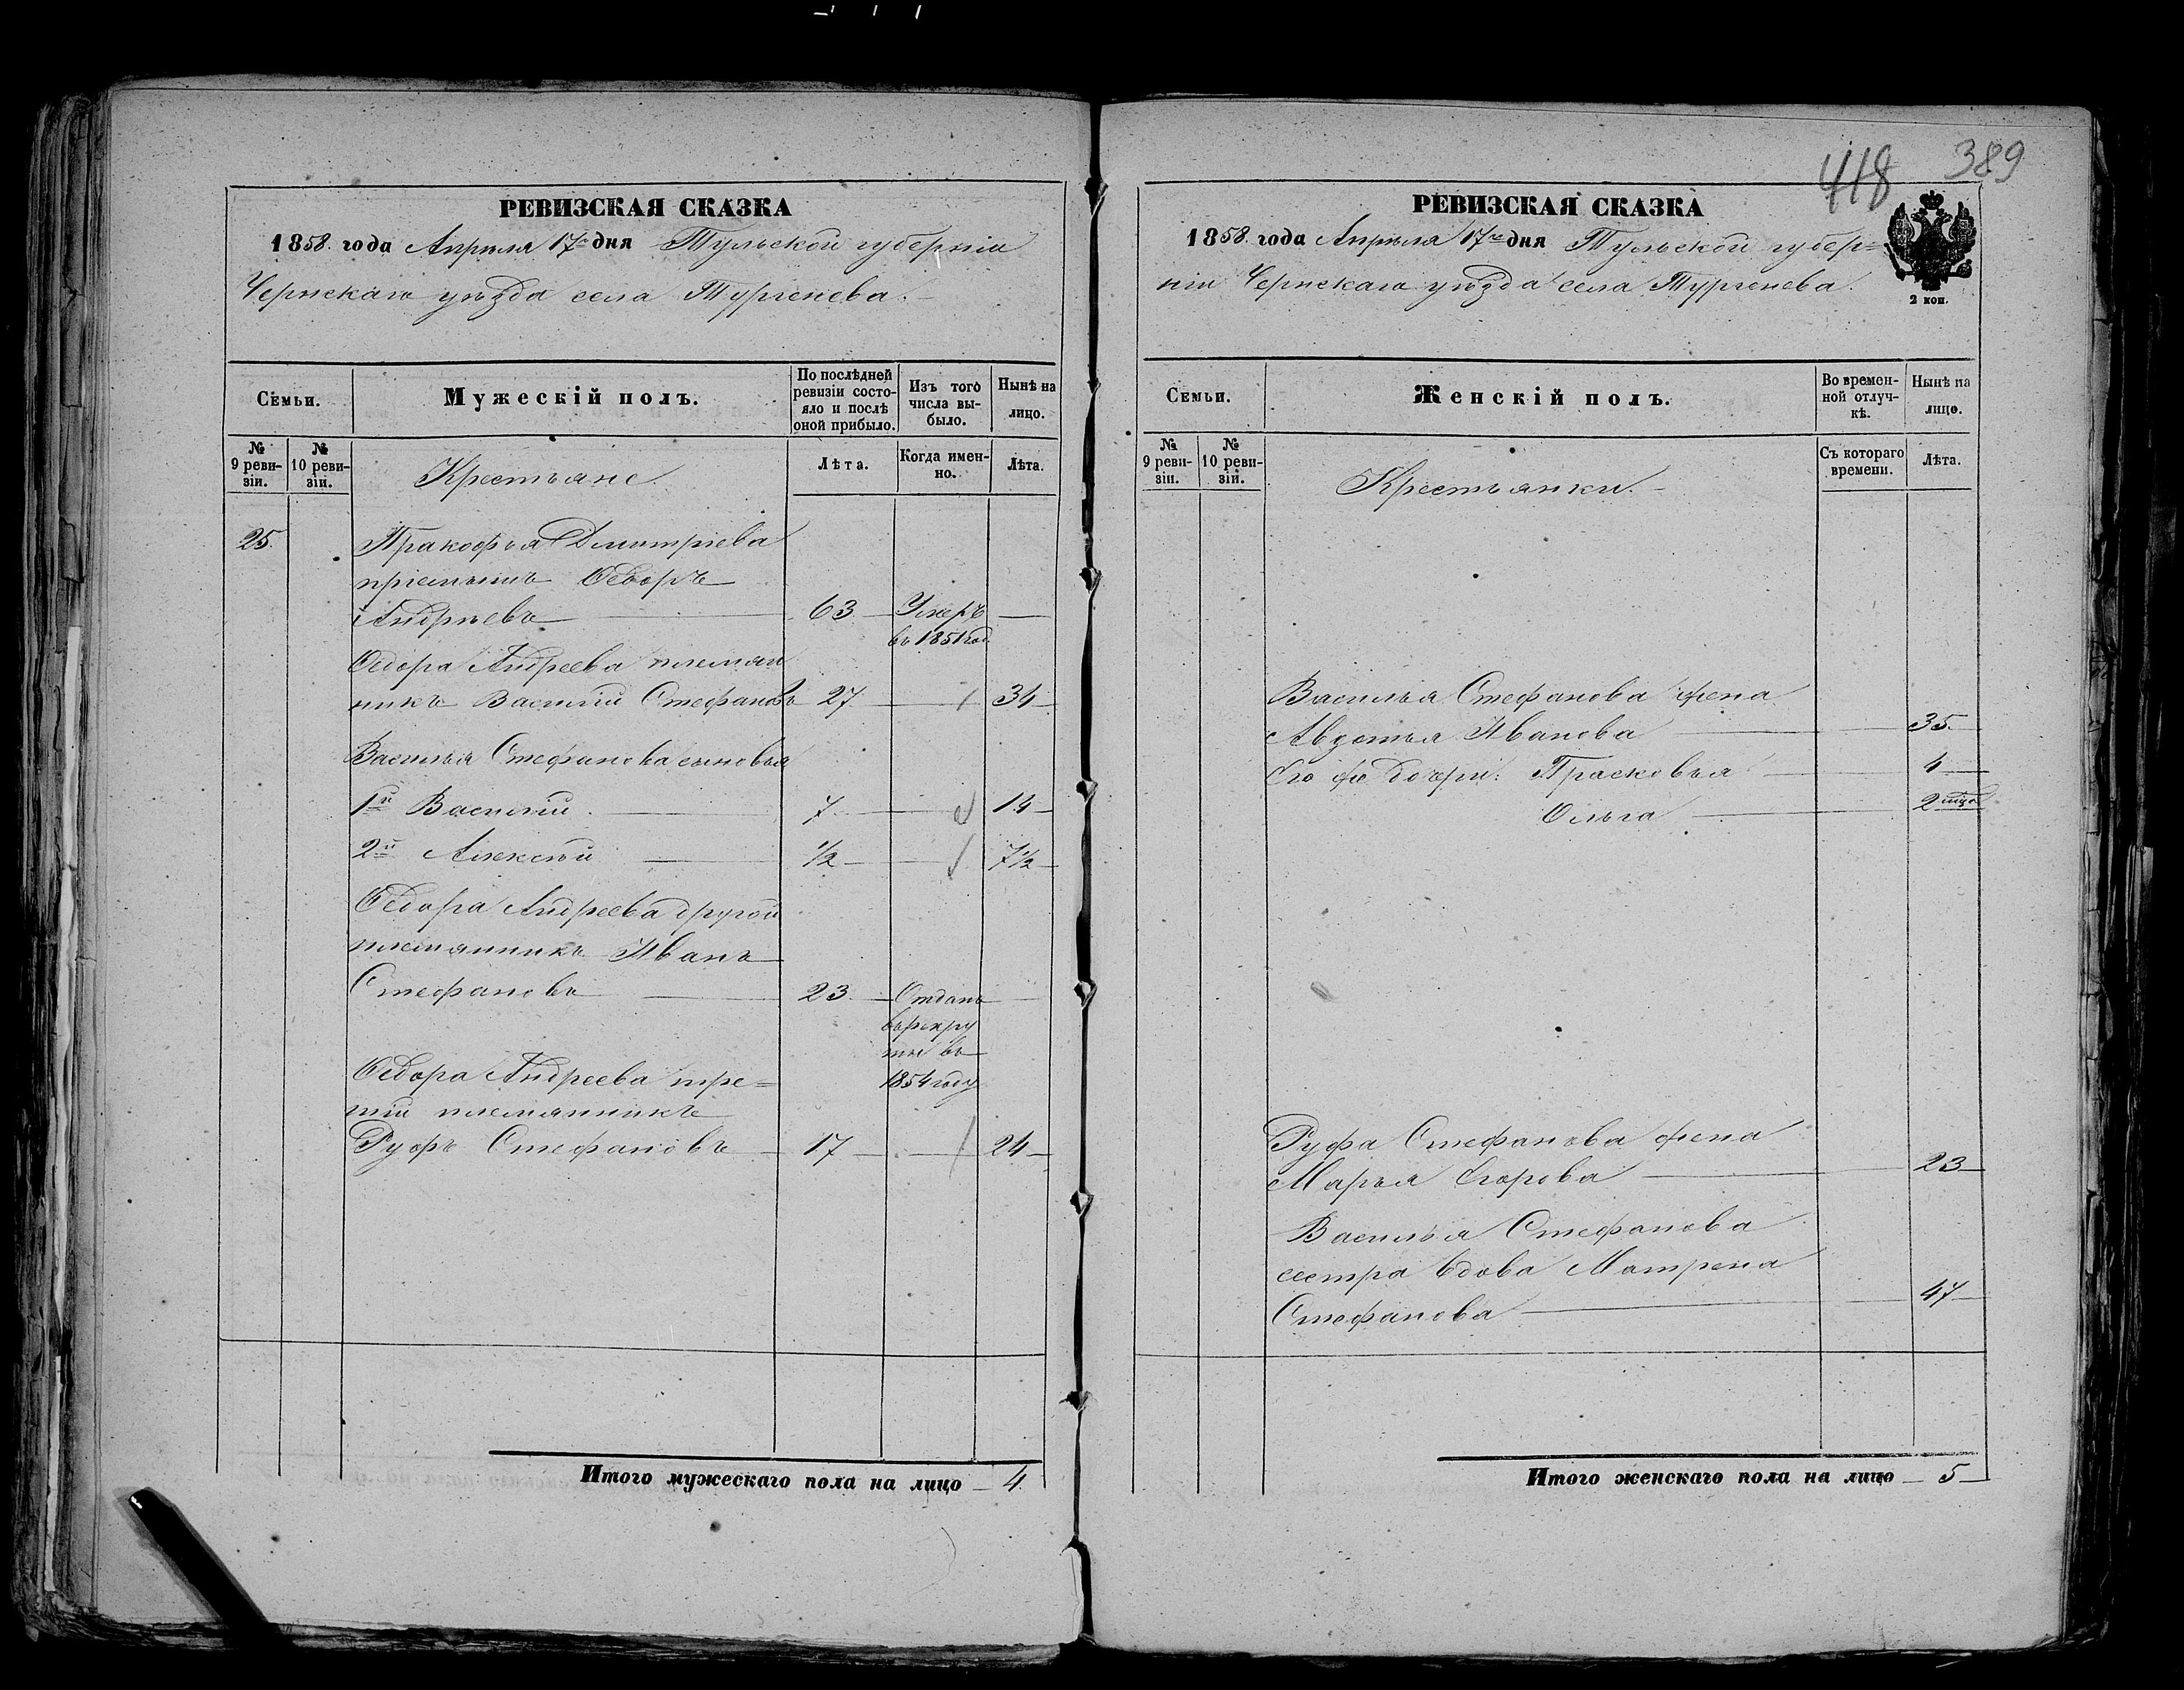 РЕВИЗСКАЯ СКАЗКА
1858. года Апрѣля 17го дня Тульской губерніи
Чернскаго уѣзда села Тургенева.
Семьи.
Мужескій полъ.
По послѣдней
ревизіи состо-
яло и послѣ
оной прибыло.
Изъ того
числа вы-
было.
Нынѣ на
лицо.
№
9 реви-
зіи.
№
10 реви-
зіи.
Крестьяне
Лѣта.
Когда имен-
но.
Лѣта.
25.
Пракофья Дмитріева
пріемышъ Ѳедоръ
Андрѣевъ 63 Умеръ
въ 1851 год.
Ѳедора Андреева племян
никъ Василій Стефановъ 27 34
Василья Стефанова сыновья
1й Василій 7 14
2й Алексѣй 1/2 7 1/2
Ѳедора Андреева другой
племянникъ Иванъ
Стефановъ 23 Отданъ
въ рекру
ты въ
1854 году
Ѳедора Андреева тре=
тій племянникъ
Руфъ Стефановъ 17 24
Итого мужескаго пола на лицо 4.
418 389
РЕВИЗСКАЯ СКАЗКА
1858. года Апрѣля 17го дня Тульской губер=
ніи Чернскаго уѣзда села Тургенева.
2 коп.
Семьи.
Женскій полъ.
Во времен-
ной отлуч-
кѣ.
Нынѣ на
лицо.
№
9 реви-
зіи.
№
10 реви-
зіи.
Крестьянки.
Съ котораго
времени.
Лѣта.
Василья Стефанова жена
Авдотья Иванова 35.
Его же дочери: Прасковья 4
Ольга 2
Руфа Стефанова жена
Марья Егорова 23
Василья Стефанова
сестра вдова Матрена
Стефанова 47
Итого женскаго пола на лицо 5